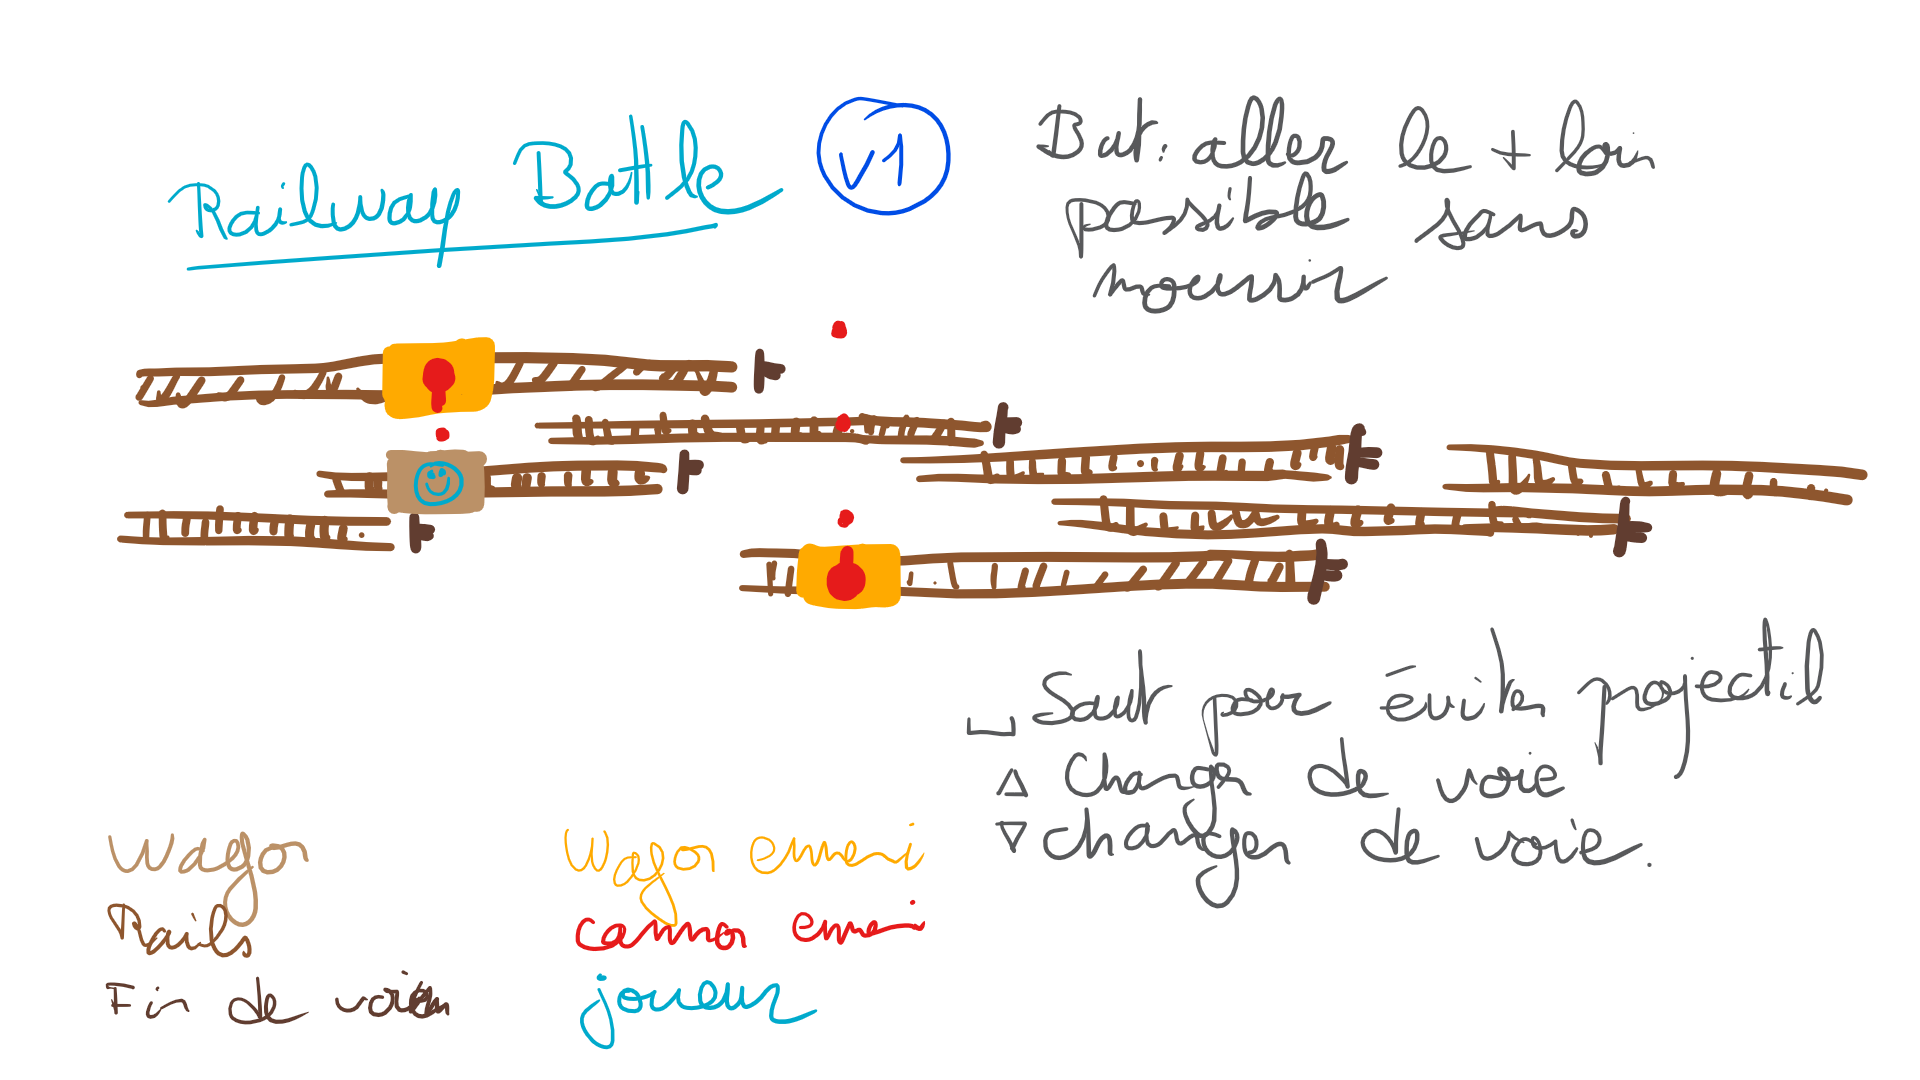 Railway Battle
v1
But: aller le + loin
possible sans
mourrir
␣ Saut pour éviter projectil
△ Changer de voie
▽ changer de voie.
Wagon
Rails
Fin de voie
Wagon ennemi
cannon ennemi
joueur